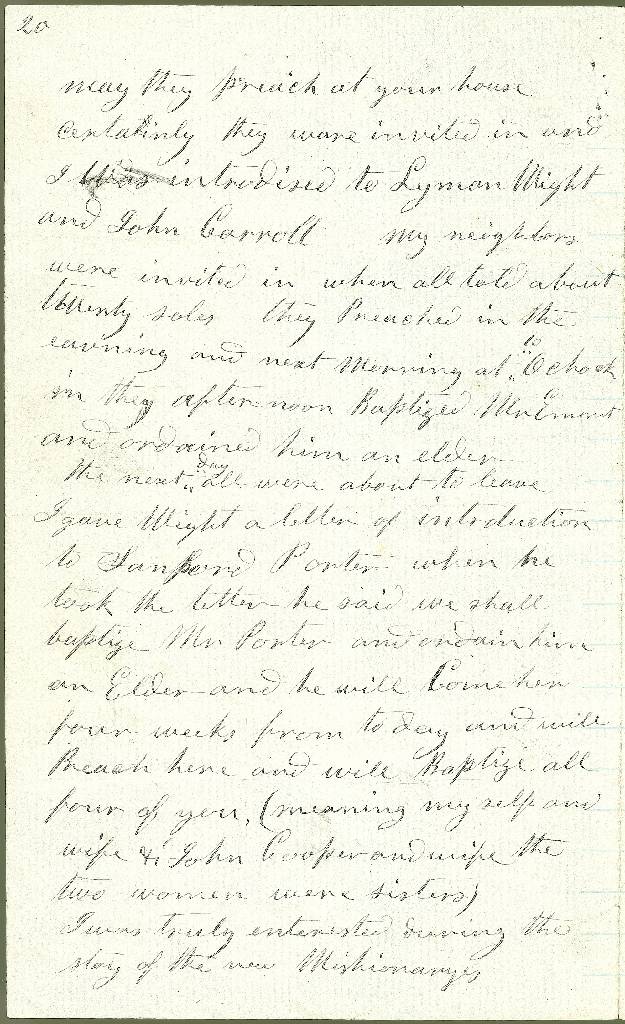 20
may they preach at your house
Certatinly they ware invited in and
I Was introdised to Lyman Wight
and John Carroll my neighbors
were invited in when all told about
twenty soles they Preached in the
eavning and next Morning at 10 Oclock
in they after noon Baptized Mr
and ordained him an elder
the next day all were about to leave
I gave Wight a letter of introduction
to Sanford Porter when he
took the letter he said we shall
baptize Mr Porter and ordain him
an Elder and he will Come her
four weeks from to day and will
Preach here and will Baptize all
four of you, (meaning my self and
wife & John Cooper and wife the
two women were sisters)
I was truly enterested during the
stay of the new Mishionarys